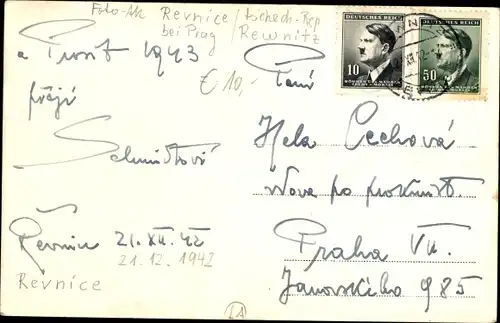 Foto-Ak Revnice / tschech-Rep
bei Prag / Rewnitz
a Prosit 1943
€ 10,-
přejí
Schmidtovi
Řevnice 21.XII.42
21.12.1942
Revnice
DEUTSCHES REICH
10
BÖHMEN U. MÄHREN
ČECHY A MORAVA
DEUTSCHES REICH
50
BÖHMEN U. MÄHREN
Paní
Hela Čechová
vdova po
Praha VII.
Janovského 985